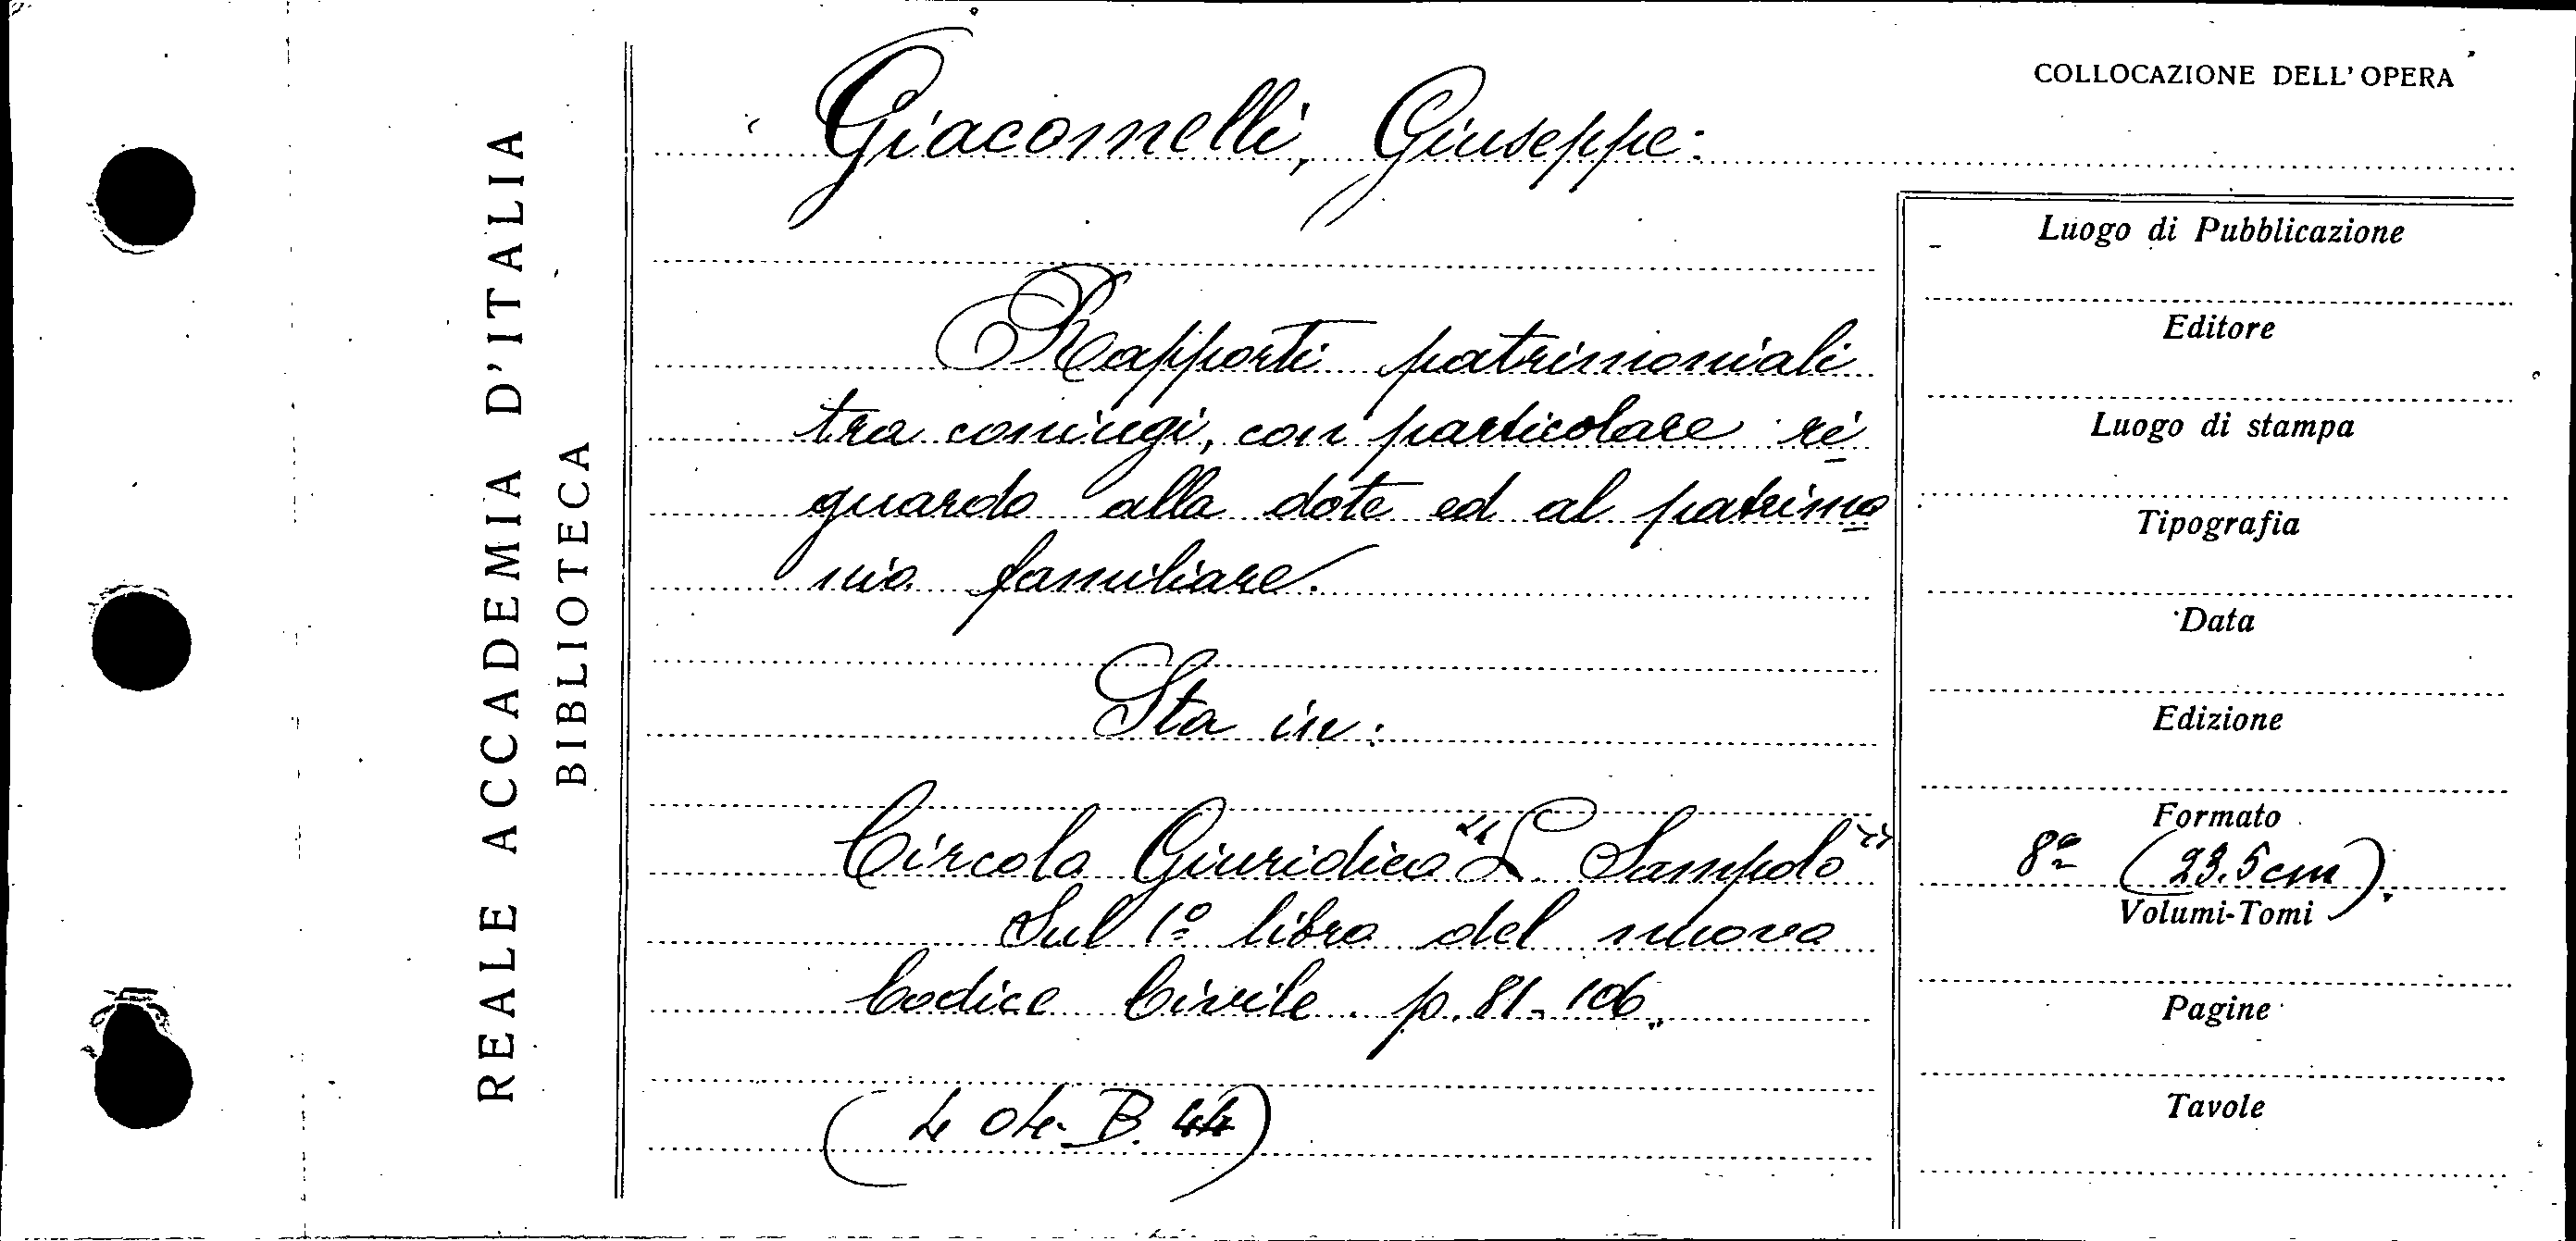 REALE ACCADEMIA D'ITALIA
BIBLIOTECA
COLLOCAZIONE DELL'OPERA
Giacomelli, Giuseppe:
Rapporti patrimoniali
tra coniugi, con particolare ri
guardo alla dote ed al patrimo
nio familiare.
Sta in:
Circolo Giuridico "L. Sampolo"
Sul 1º libro del nuovo
Codice Civile. p. 81-106.
(4 04. B. 44)
Luogo di Pubblicazione
Editore
Luogo di stampa
Tipografia
Data
Edizione
Formato
8º (23.5 cm).
Volumi-Tomi
Pagine
Tavole